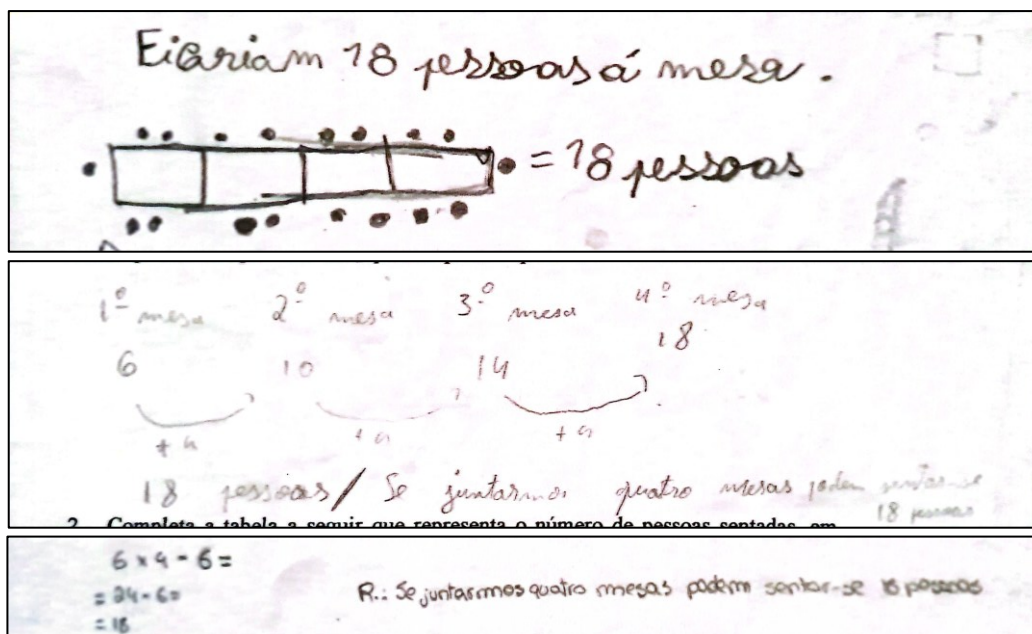 Ficariam 18 pessoas á mesa.
= 18 pessoas
1º mesa 2º mesa 3º mesa 4º mesa
6 10 14 18
+4 +4 +4
18 pessoas / Se juntarmos quatro mesas podem sentar-se
18 pessoas
2. Completa a tabela a seguir que representa o número de pessoas sentadas, em
6 x 4 - 6 =
= 24 - 6 =
= 18
R.: Se juntarmos quatro mesas podem sentar-se 18 pessoas